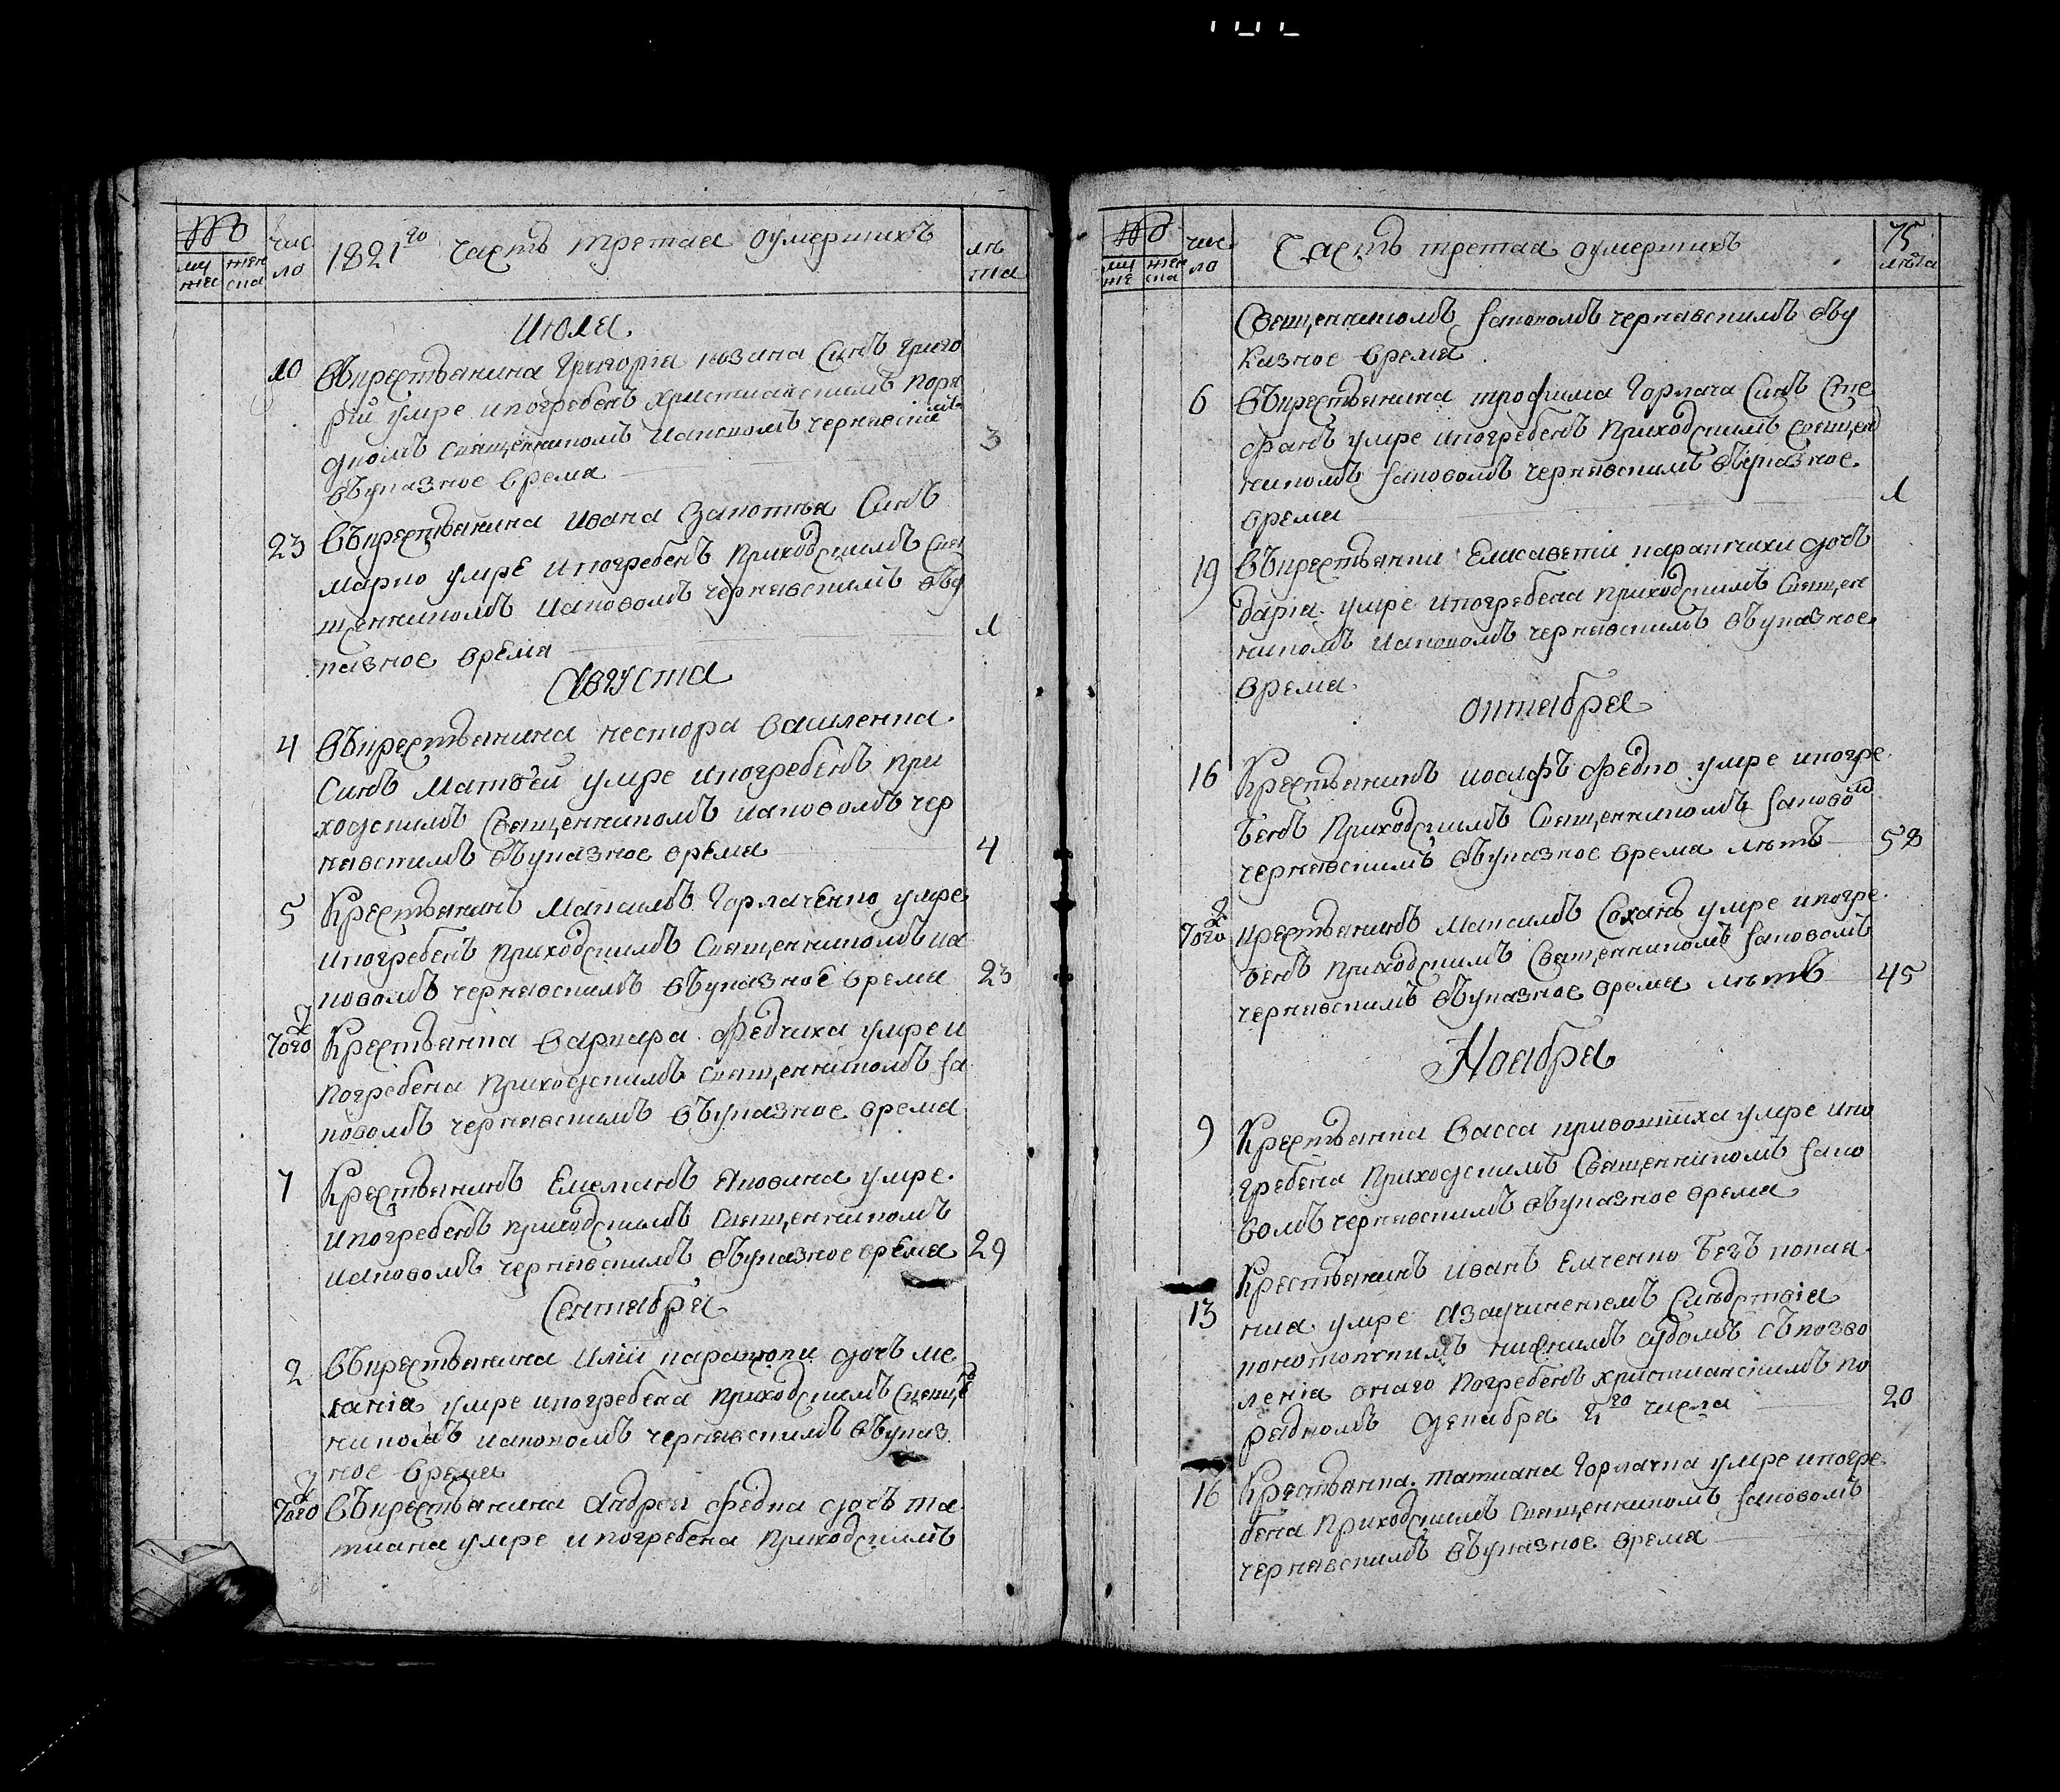 №
чис
ло
му
жес
жен
ска
1821го часть третая оумершихъ
лѣ
та
Июля
10 въкрестьянина Григорія Синъ григо
рій умре ипогребенъ христианскимъ поря
дкомъ священникомъ Иаковомъ чернявским
въуказное время
3
23 въкрестьянина Ивана Синъ
марко умре ипогребенъ приходскимъ свя
щенникомъ Иаковомъ чернявскимъ въу
казное время
1
Августа
4 въкрестьянина нестора василенка
Синъ Матвѣй умре ипогребенъ при
ходскимъ Священникомъ иаковомъ чер
нявскимъ въуказное время 4
5 Крестьянинъ Максимъ Горлаченко умре
ипогребенъ приходскимъ Священникомъ иа
ковомъ чернявскимъ въуказное время 23
того Крестьянка варвара Федчиха умре и
погребена приходскимъ священникомъ іа
ковомъ чернявскимъ въуказное время
7 Крестьянинъ Емелианъ Яковина умре
ипогребенъ приходскимъ Священникомъ
Иаковомъ чернявскимъ въуказное время 29
Сентября
2 въкрестьянина Иліи дочь ме
ланія умре ипогребена приходскимъ Свяще
никомъ иаковомъ чернявскимъ въуказ
ное время
того въкрестьянина Андрея Федка дочь та
тиана умре ипогребена приходскимъ
№
му
же
жен
ска
чис
ло
Часть третая оумершихъ
75
лѣта
Священникомъ іаковомъ чернявскимъ въу
казное время
6 въкрестьянина трофима Горлача Синъ Сте
фанъ умре ипогребенъ приходскимъ Священ
никомъ іаковомъ чернявскимъ въуказное
время
1
19 въкрестьянки Елисаветы дочь
дарія умре ипогребена приходскимъ Священ
никомъ Иаковомъ чернявскимъ въуказное
время
октября
16 Крестьянинъ иосифъ Федко умре ипогре
бенъ приходскимъ Священникомъ іаковом
чернявскимъ въуказное время лѣтъ 58
того крестьянинъ Максимъ Сохань умре ипогре
бенъ приходскимъ Священникомъ іаковомъ
чернявскимъ въуказное время лѣтъ 45
Ноября
9 Крестьянка васса умре ипо
гребена приходскимъ Священникомъ іако
вомъ чернявскимъ въуказное время
13 Крестьянинъ иванъ Емченко безъ покая
нія умре Азаучиненіемъ Слѣдствія
конотопскимъ нижнимъ судомъ съпозво
ленія онаго погребенъ христианскимъ по
рядкомъ декабря 2го числа 20
16 Крестьянка татиана Горлачка умре ипогре
бена приходскимъ Священникомъ іаковомъ
чернявскимъ въуказное время